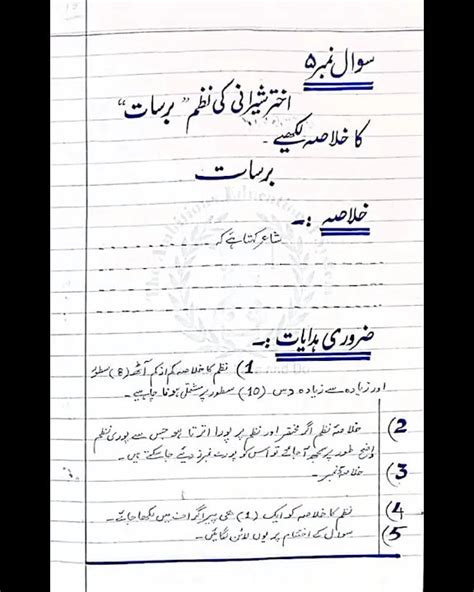 سوال نمبر ۵
اختر شیرانی کی نظم "برسات"
کا خلاصہ لکھیے۔
برسات
خلاصہ :۔
شاعر کہتا ہے کہ
ضروری ہدایات :۔
1) نظم کا خلاصہ کم از کم آٹھ (8) سطور
اور زیادہ سے زیادہ دس (10) سطور پر مشتمل ہونا چاہیے۔
2) خلاصۂ نظم اگر مختصر اور نظم پر پورا اترتا ہو جس سے پوری نظم
واضح طور پر سمجھ آ جائے تو اس کو پورے نمبر دیئے جا سکتے ہیں۔
3) خلاصہ نمبر۔
4) نظم کا خلاصہ کو ایک (1) ہی پیراگراف میں لکھا جائے۔
5) سوال کے اختتام پر یوں لائن لگائیں۔